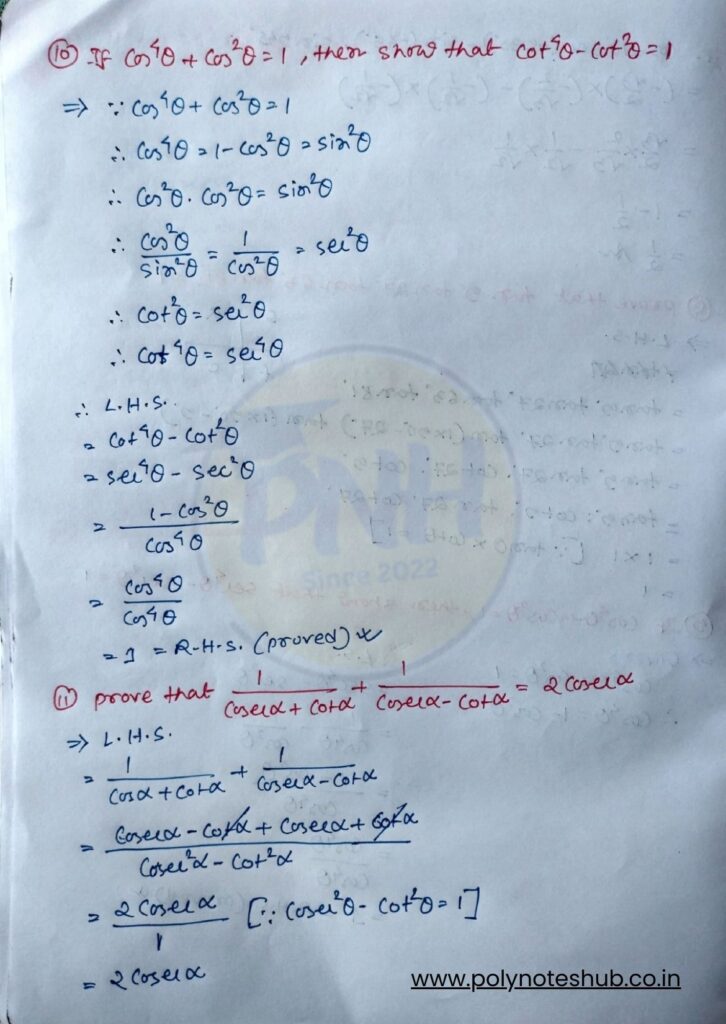 ⑩ If cos⁴θ + cos²θ = 1, then show that cot⁴θ - cot²θ = 1
⇒ ∵ cos⁴θ + cos²θ = 1
∴ cos⁴θ = 1 - cos²θ = sin²θ
∴ cos²θ · cos²θ = sin²θ
∴ cos²θ/sin²θ = 1/cos²θ = sec²θ
∴ cot²θ = sec²θ
∴ cot⁴θ = sec⁴θ
∴ L.H.S.
= cot⁴θ - cot²θ
= sec⁴θ - sec²θ
= (1 - cos²θ)/cos⁴θ
= cos⁴θ/cos⁴θ
= 1 = R.H.S. (proved)
PNH
Since 2022
⑪ prove that 1/(cosecα + cotα) + 1/(cosecα - cotα) = 2cosecα
⇒ L.H.S.
= 1/(cosα + cotα) + 1/(cosecα - cotα)
= (cosecα - cotα + cosecα + cotα)/(cosec²α - cot²α)
= 2cosecα/1 [∵ cosec²θ - cot²θ = 1]
= 2cosecα
www.polynoteshub.co.in